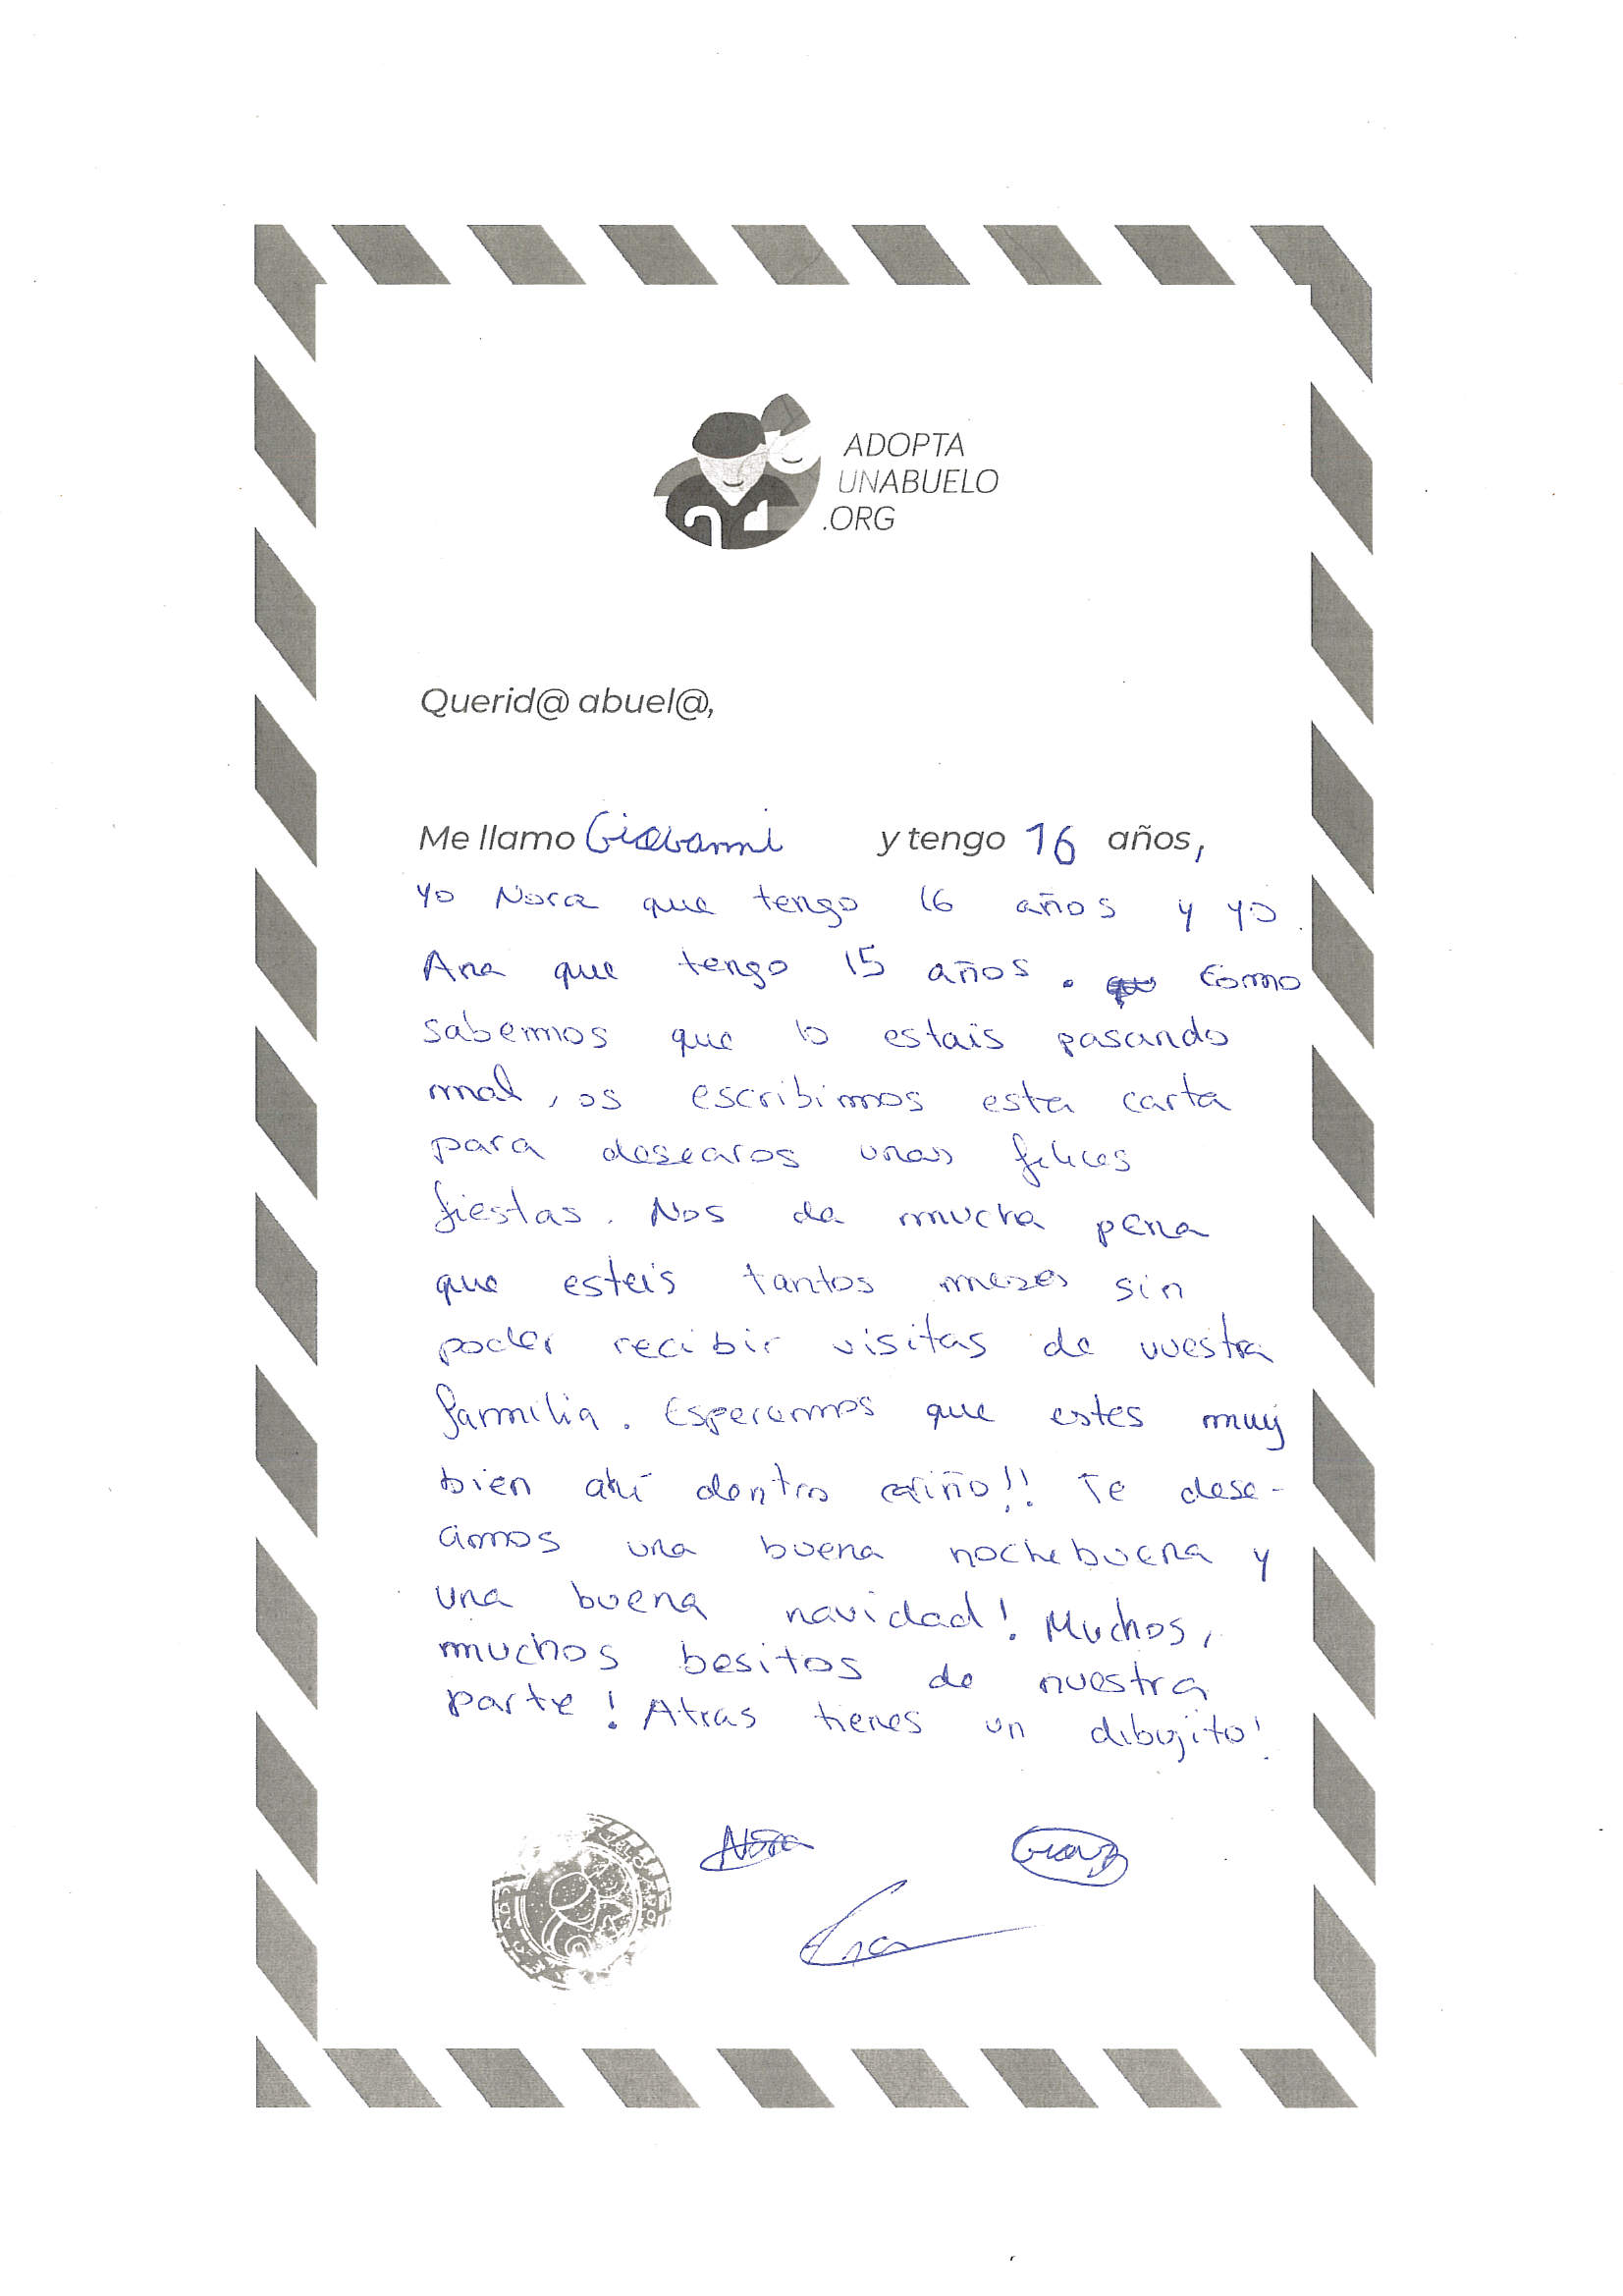 ADOPTA
UNABUELO
.ORG
Querid@ abuel@,
Me llamo Giovanni y tengo 16 años,
yo Nora que tengo 16 años y yo
Ana que tengo 15 años. Como
sabemos que lo estais pasando
mal, os escribimos esta carta
para desearos unas felices
fiestas. Nos da mucha pena
que esteis tantos meses sin
poder recibir visitas de vuestra
familia. Esperamos que estes muy
bien ahí dentro cariño!! Te dese-
amos una buena nochebuena y
una buena navidad! Muchos,
muchos besitos de nuestra
parte! Atras tienes un dibujito!
Nora
Ana